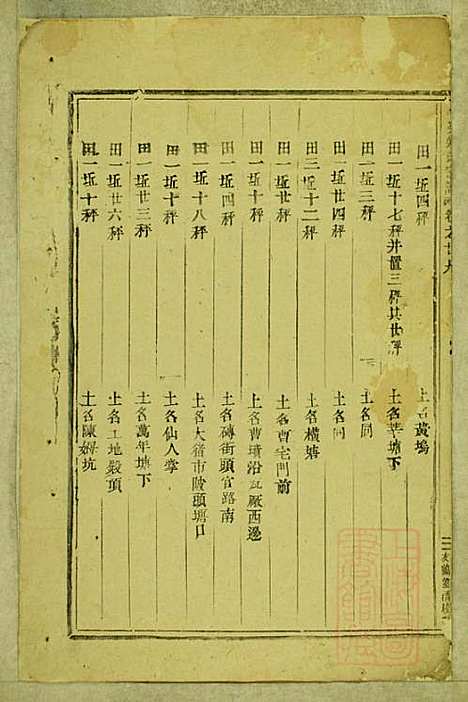 田一坵四秤 土名黃塢
田一坵十七秤并置三秤共廿秤 土名莘塘下
田一坵三秤 土名同
田一坵廿四秤 土名同
田三坵十二秤 土名橫塘
田一坵廿秤 土名曹宅門前
田一坵十秤 土名曹墳沿瓦廠西邊
田一坵四秤 土名磚街頭官路南
田一坵十八秤 土名大猪市陂頭塘口
田一坵十秤 土名仙人掌
田一坵廿三秤 土名萬年塘下
田一坵廿六秤 土名土地殿頂
田一坵十秤 土名陳婦坑